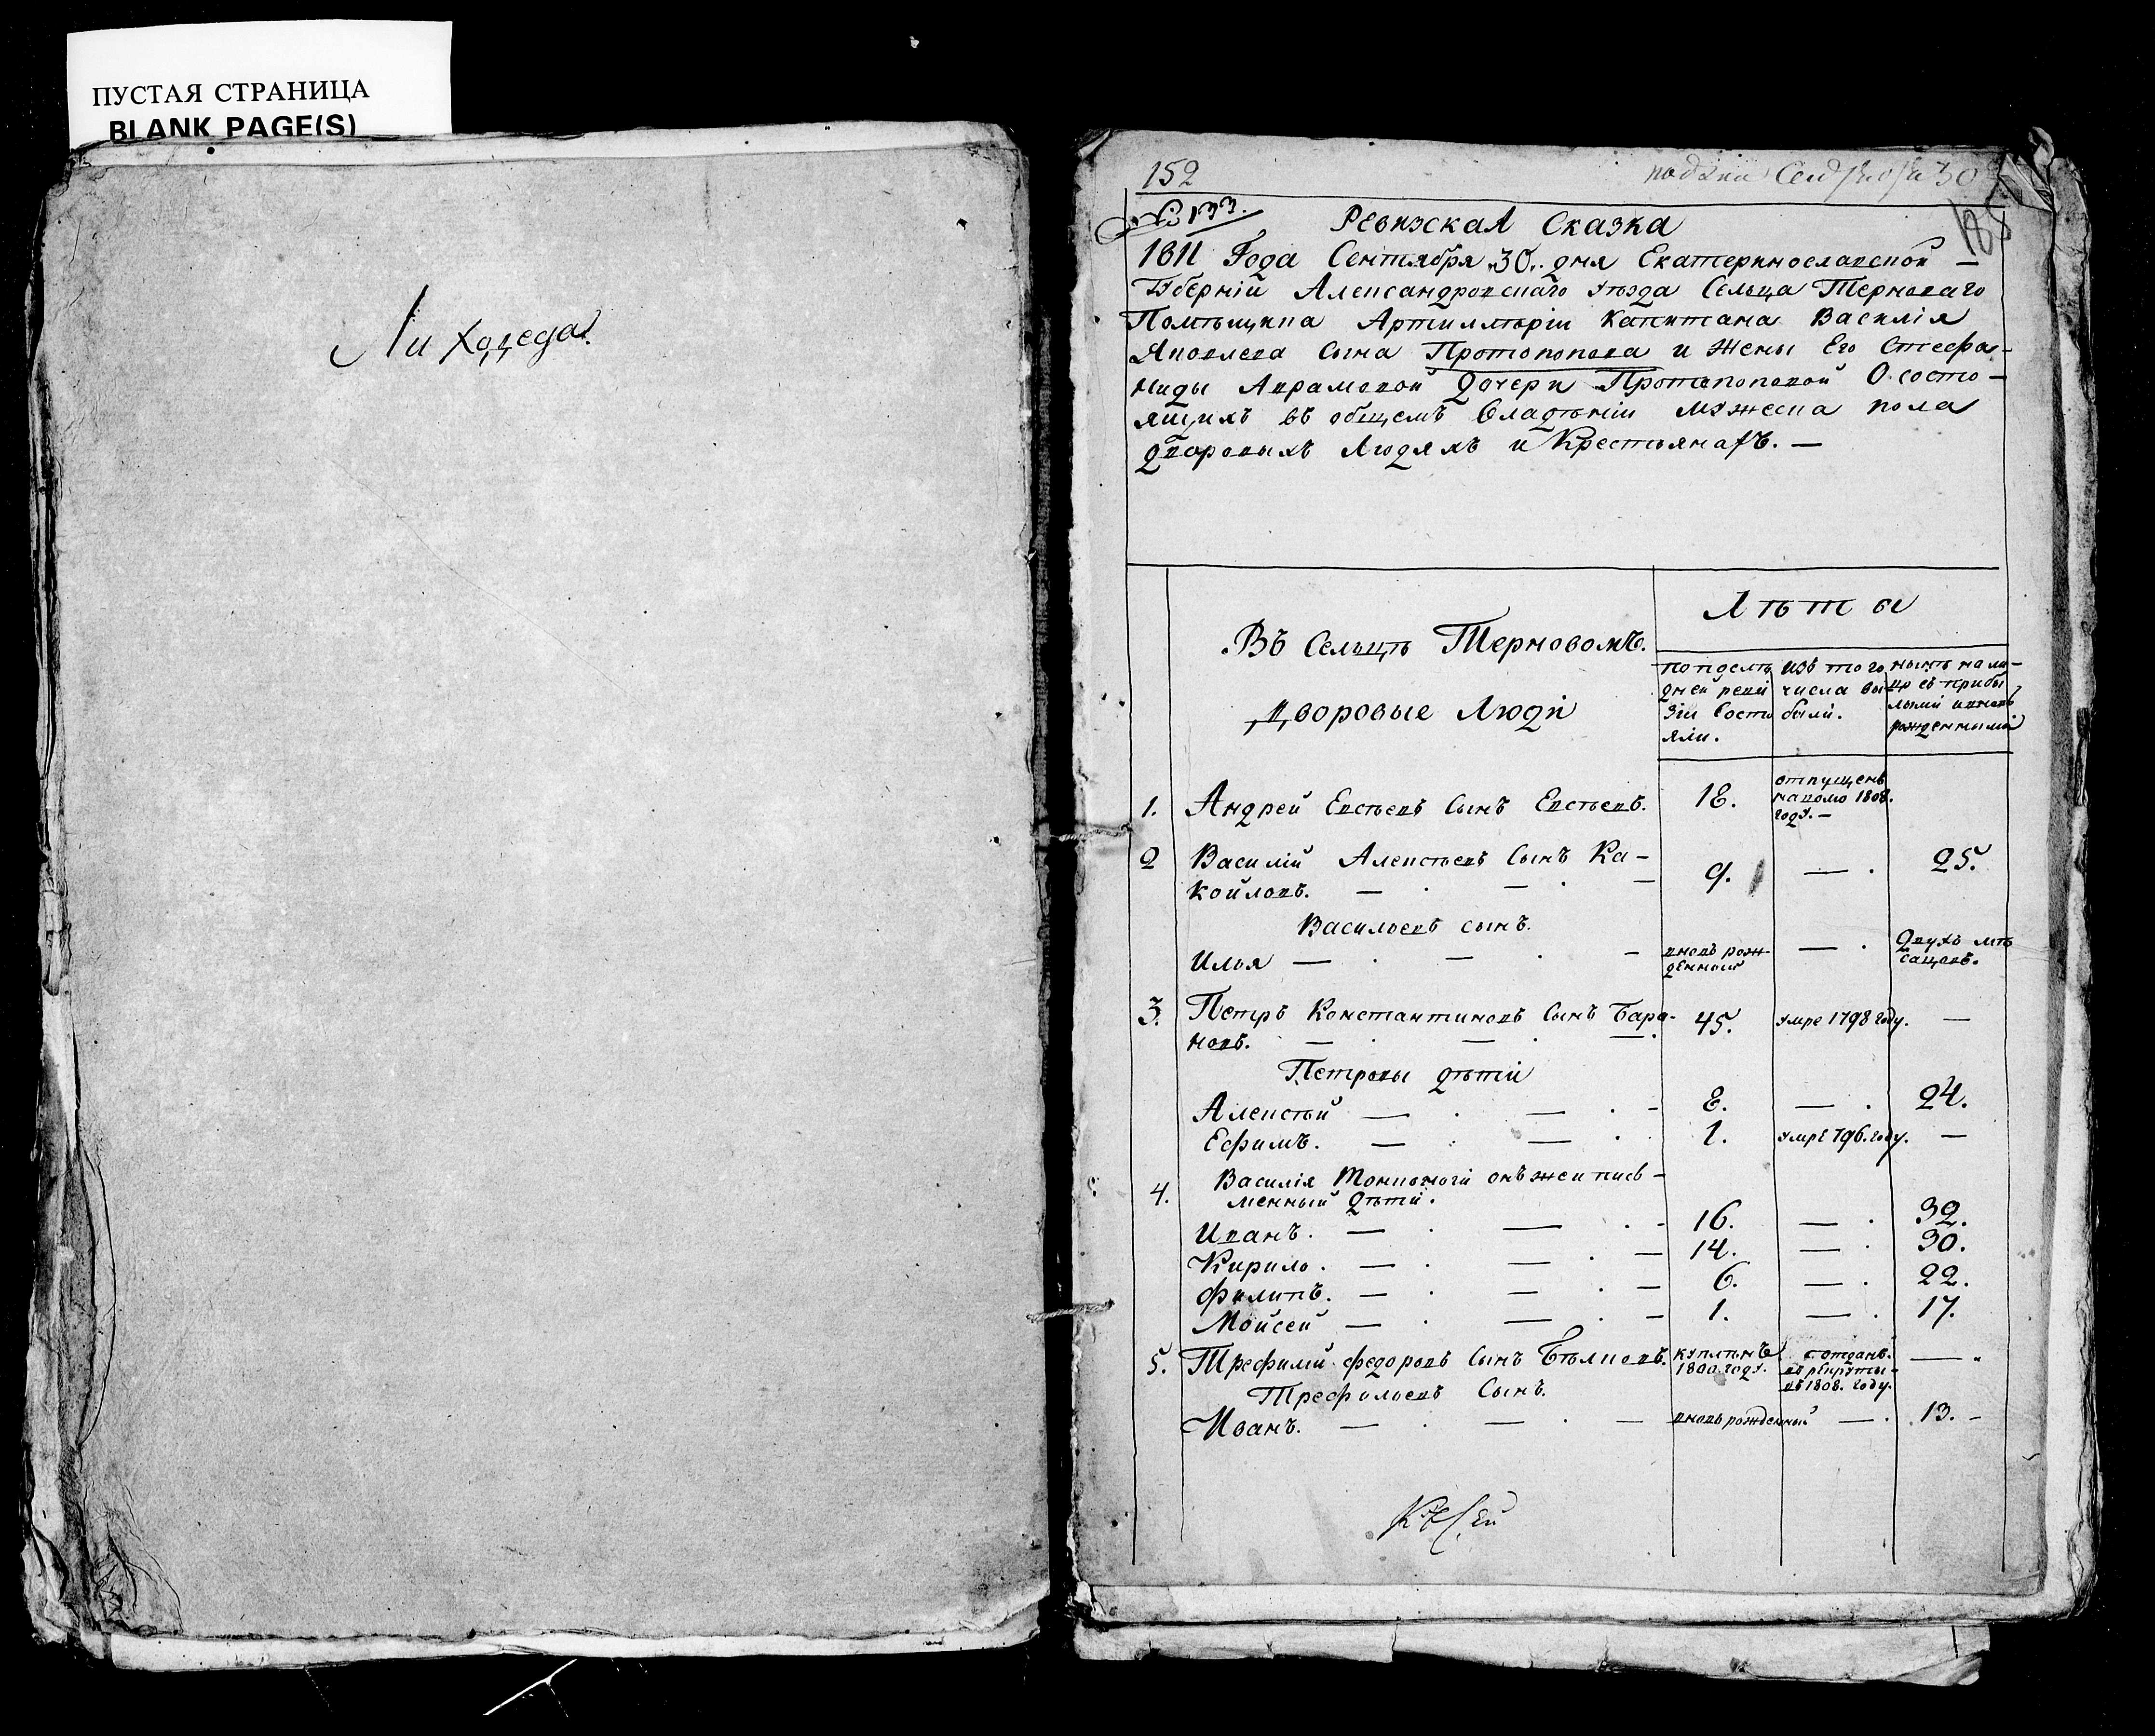 ПУСТАЯ СТРАНИЦА
BLANK PAGE(S)
Лихоцеда
152
№ 133.
185
Ревизская Сказка
1811 Года Сентября 30. дня Екатеринославской
Губерніи Александровскаго Уѣзда Сельца Терноваго
Помѣщика Артиллѣріи капитана Василія
Яковлева сына Протопопова и жены Его Стефа-
ниды Аврамовой дочери Протопоповой О состо-
ящихъ въ общемъ владѣніи мужеска пола
дворовыхъ людяхъ и крестьянахъ. —
Лѣты
Въ Сельцѣ Терновомъ.
Дворовые Люди
по послѣ
дней реви
зіи состо
яли.
изъ того
числа вы
были.
нынѣ на ли-
цо съ прибы
лыми и вновь
рожденными
1. Андрей Евсѣевъ сынъ Евсѣевъ. 18. отпущенъ
на волю 1808.
году. —
2 Василій Алексѣевъ сынъ Ка-
койловъ. — . — . — 9. — . 25.
Васильевъ сынъ.
Илья — . — . — вновь рож-
денный — . двухъ мѣ
сацовъ.
3. Петръ Константиновъ сынъ Бара-
новъ. — . — . — 45. умре 1798 году. —
Петровы дѣти
Алексѣй — . — . - 8. — . 24.
Ефимъ. — . — . 1. умре 796. году. —
4. Василія Тонконоги онъ же и пись-
менный дѣти.
Иванъ. — . — . - 16. — . 32.
Кирило. — . — . — 14. — . 30.
Филипъ. — . — . — 6. — . 22.
Мойсей — . — . - 1. — . 17.
5. Трефилій Федоровъ сынъ Бѣлковъ. купленъ
1800. году. отданъ
въ рекруты
въ 1808. году. — .
Трефильевъ сынъ.
Иванъ. — . — . — вновь рожденный — . 13. -